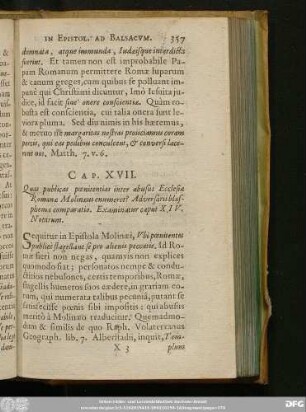 IN EPISTOL. AD BALSACVM. 357
demnata, atque immunda, Iudæisque interdicta
fuerint. Et tamen non est improbabile Pa-
pam Romanum permittere Romæ luparum
& canum greges, cum quibus se polluant impunè
qui Christiani dicuntur, Imò Iesuita ju-
dice, id facit sine onere conscientiæ. Quàm ro-
busta est conscientia, cui talia onera sunt le-
viora pluma. Sed diu nimis in his hæremus,
& metuo ist margaritas nostras proiiciamus coram
porcis, qui eas pedibus conculcent, & conversi lace-
rent nos. Matth. 7. v. 6.
CAP. XVII.
Quas publicas pœnitentias inter abusus Ecclesiæ
Romanæ Molinæus enumeret? Adversarii blas-
phema comparatio. Examinatur caput XIV.
Notarum.
Sequitur in Epistola Molinæi, Vbi pœnitentes
publicè flagellant se pro alienis peccatis, Id Ro-
mæ fieri non negas, quamvis non explices
quomodo fiat; personatos nempe & condu-
ctitios nebulones, certis temporibus, Romæ,
singulis humeros suos cædere, in gratiam eo-
rum, qui numerata talibus pecuniâ, putant se
satisfecisse pœnis sibi impositis: qui abusus
meritò à Molinæo traducitur. Quemadmo-
dum & similis de quo Raph. Volaterranus
Geograph. lib. 7. Albertladin, inquit, Tem-
X 3 pluni